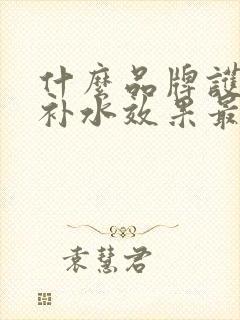 什麼品牌護
补水效果最
袁慧君